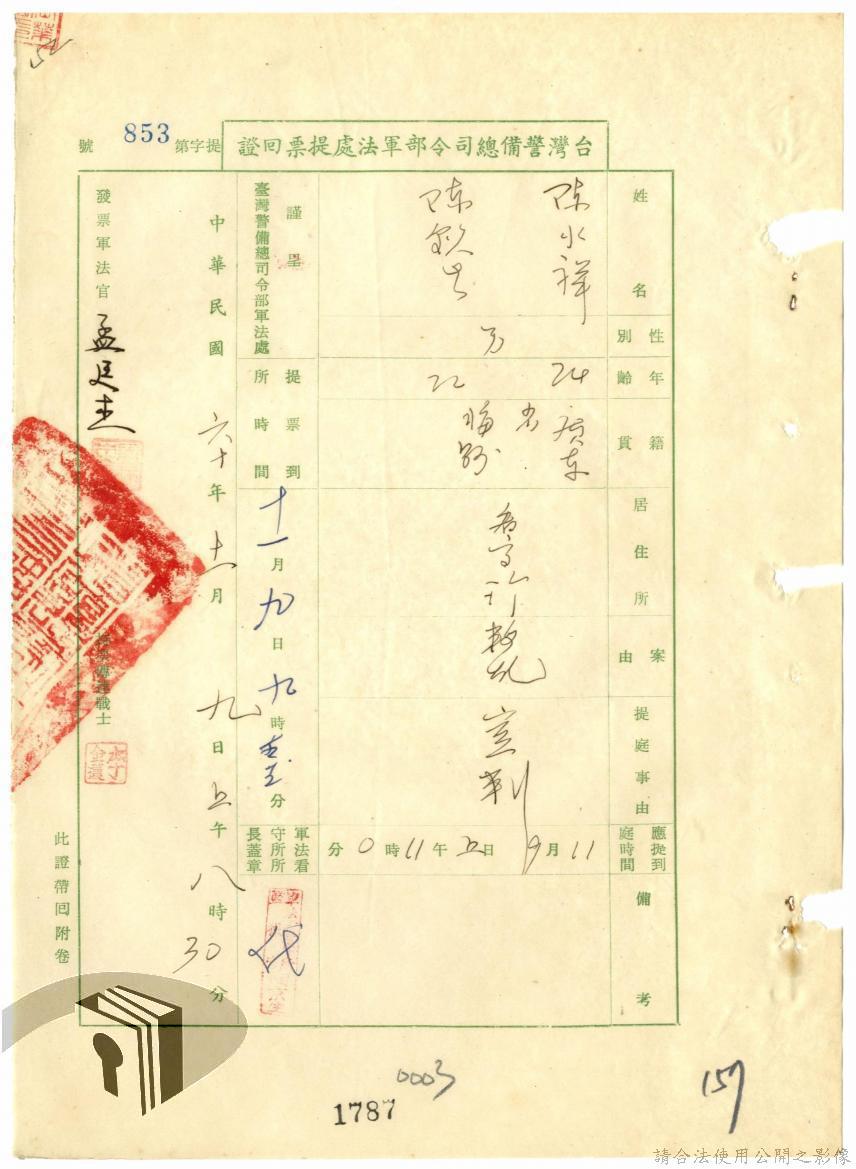 台灣警備總司令部軍法處提票回證
提字第853號
姓名
陳水祥
陳欽生
性別
男
年齡
24
22
籍貫
廣東省
福州
居住所
案由
叛亂
提庭事由
宣判
應提到庭時間
11月9日上午11時0分
備考
謹呈
臺灣警備總司令部軍法處
提票到所時間
十一月九日九時
分
軍法看守所所長蓋章
代
中華民國六十年十一月九日上午八時30分
發票軍法官 孟廷杰
此證帶回附卷
0003
1787
157
請合法使用公開之影像